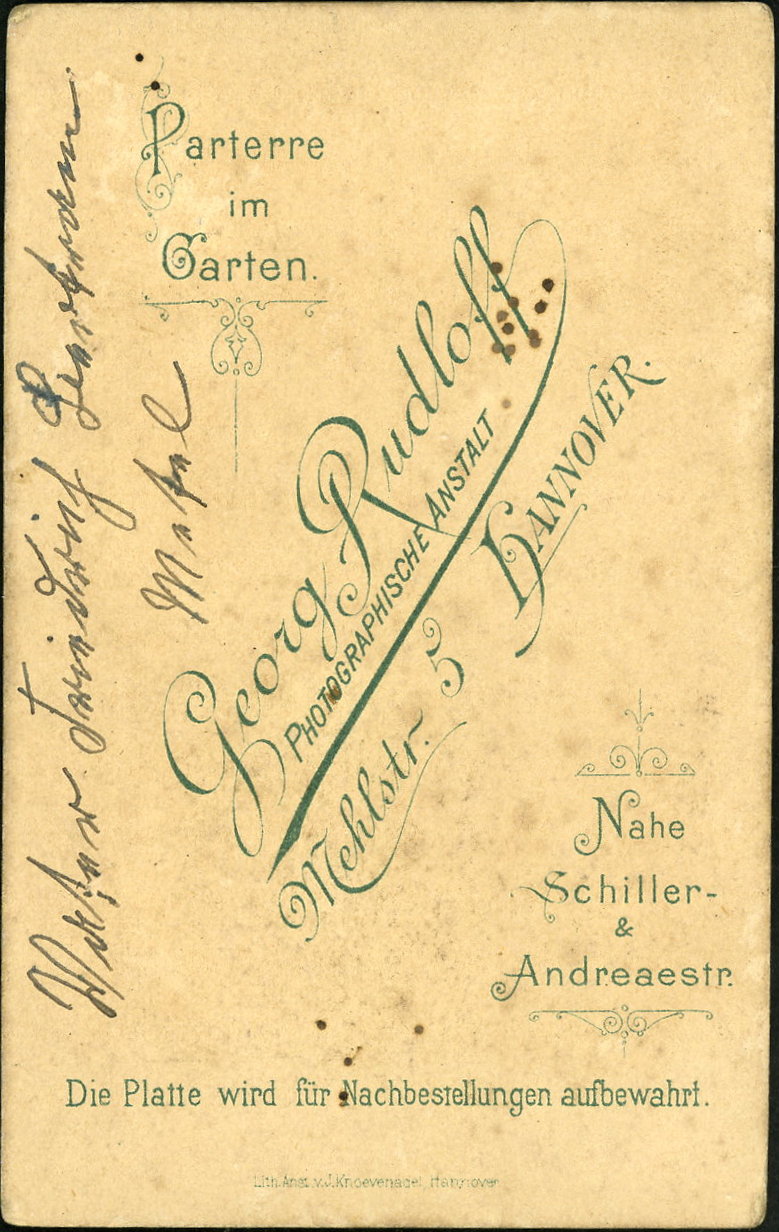 Parterre
im
Garten.
Georg Rudloff
PHOTOGRAPHISCHE ANSTALT
Mehlstr. 5 HANNOVER.
Nahe
Schiller-
&
Andreaestr.
Die Platte wird für Nachbestellungen aufbewahrt.
Lith. Anst. v. J. Knoevenagel Hannover
Friedrich